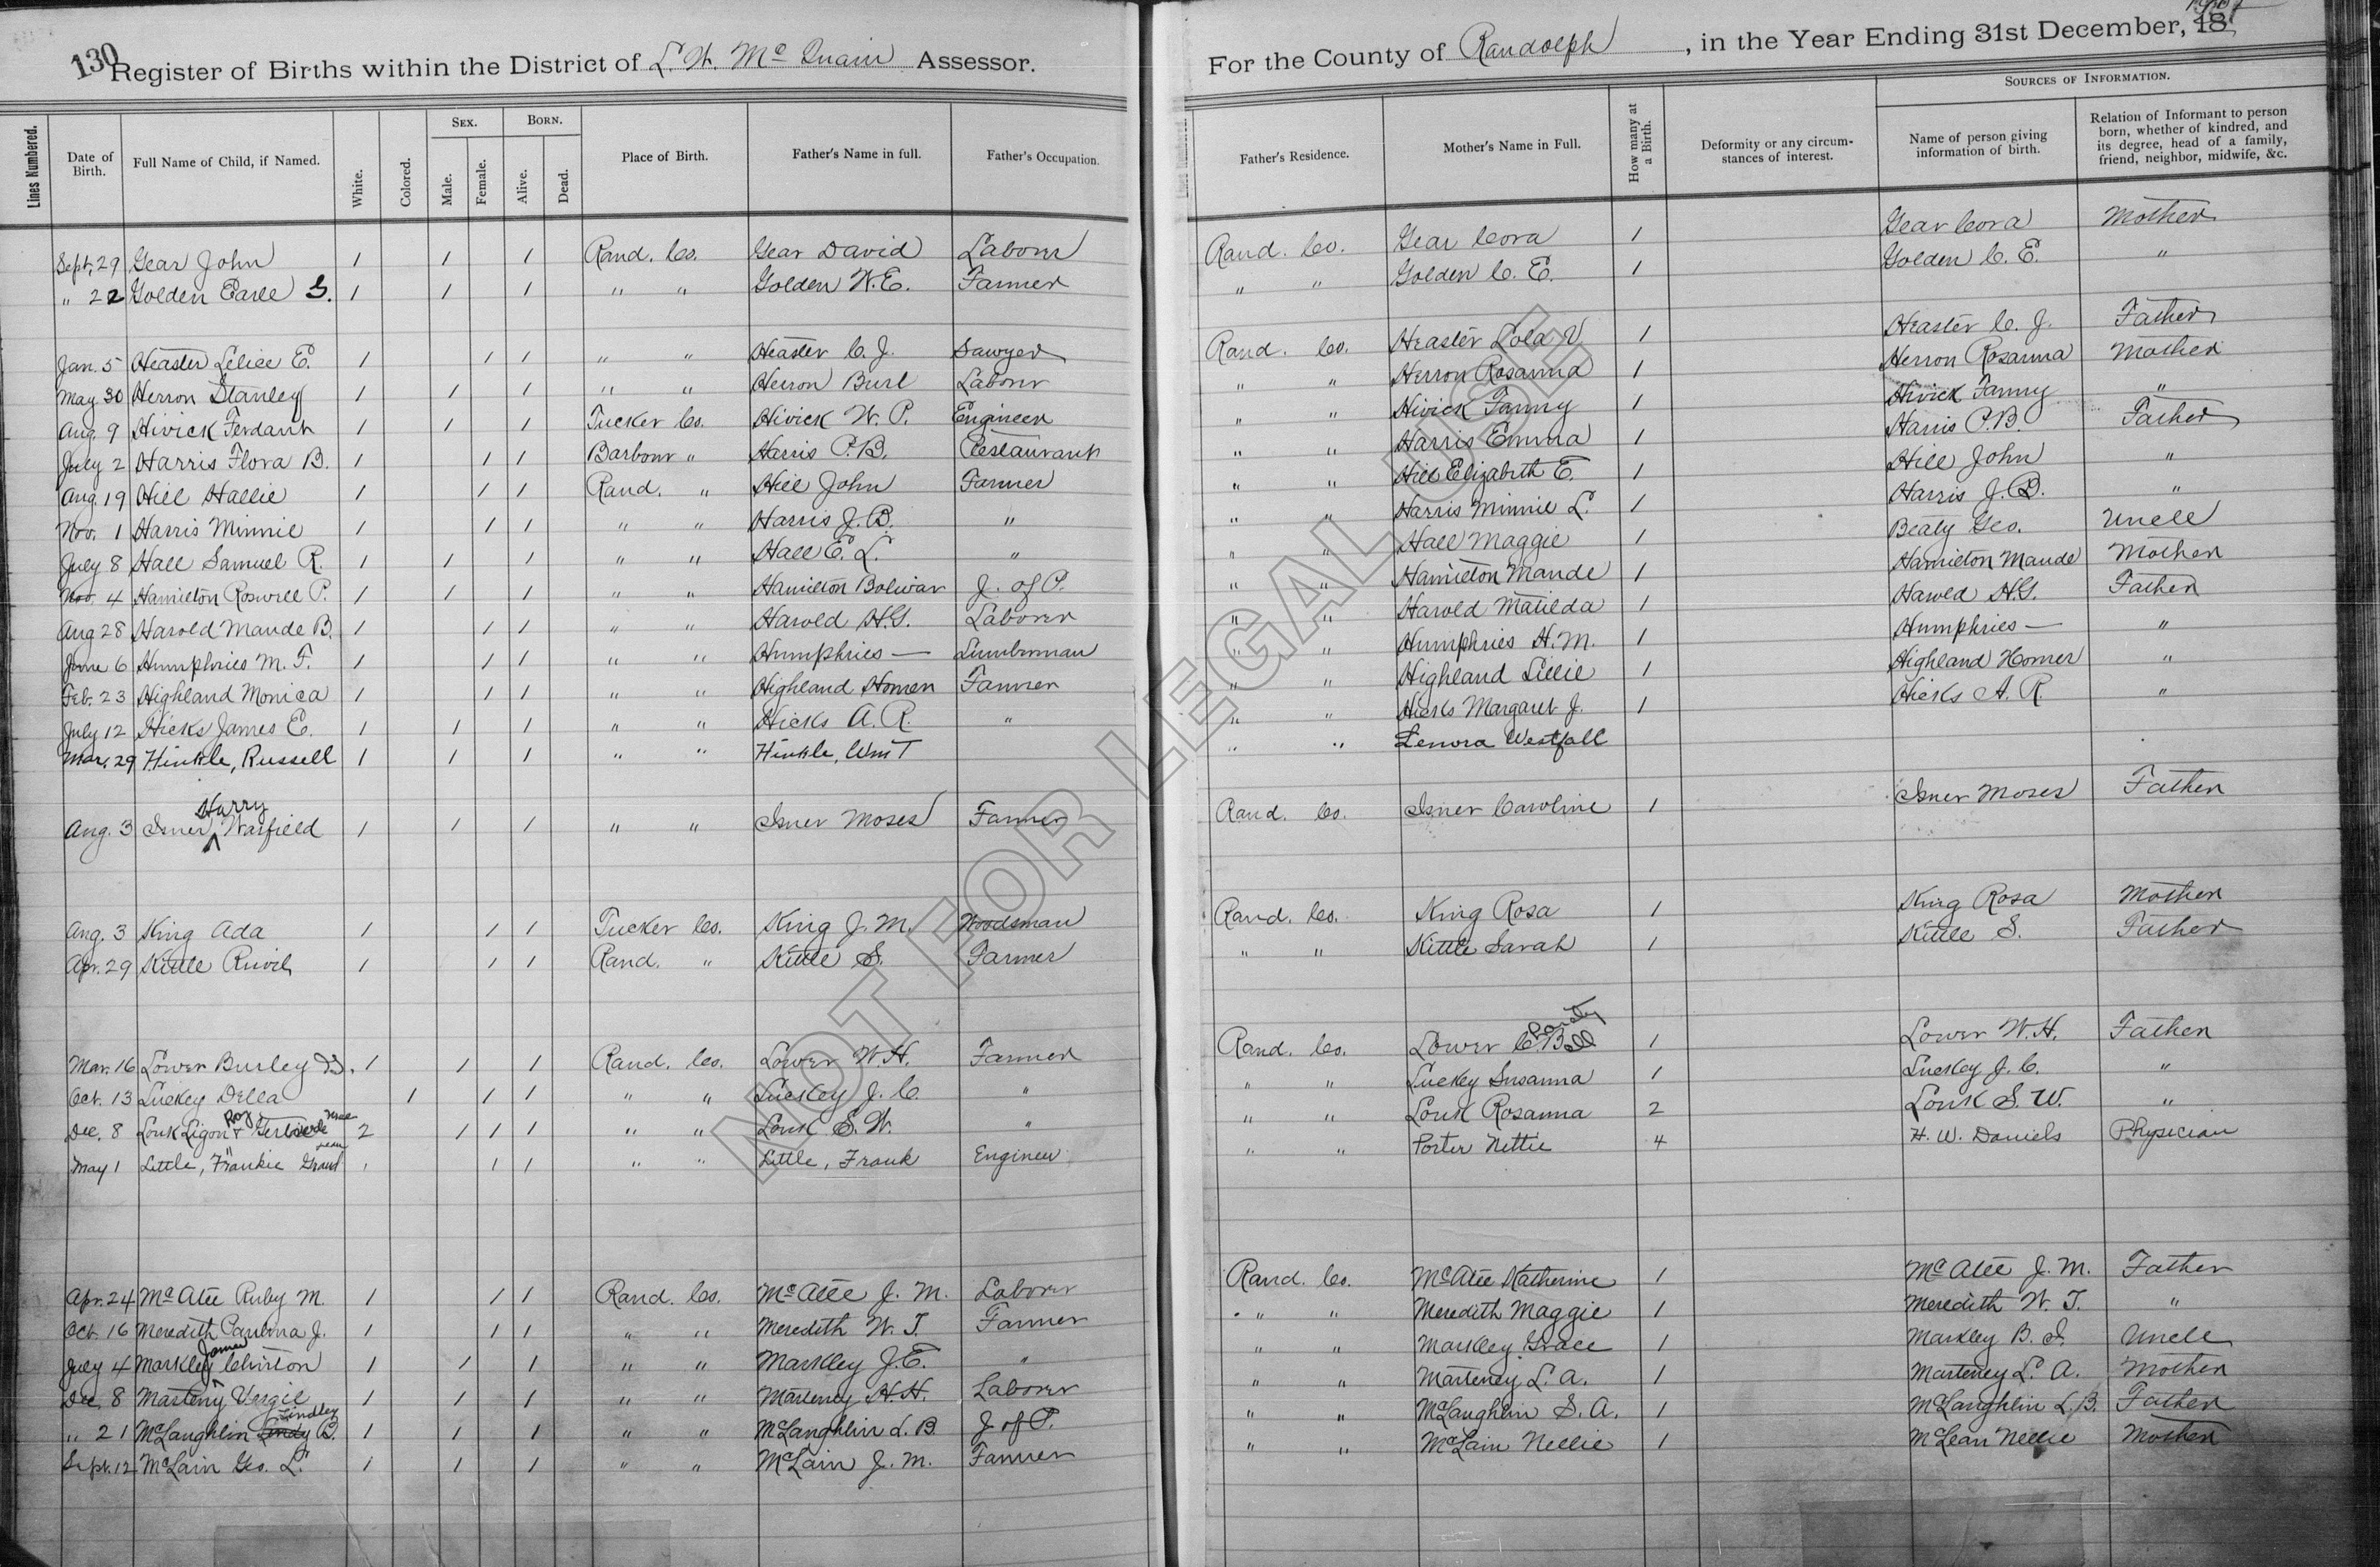 130
Register of Births within the District of L. W. McQuain Assessor. For the County of Randolph, in the Year Ending 31st December, 18
Lines Numbered. Date of Birth. Full Name of Child, if Named. White. Colored. Sex. Male. Female. Born. Alive. Dead. Place of Birth. Father's Name in full. Father's Occupation. Father's Residence. Mother's Name in Full. How many at a Birth. Deformity or any circumstances of interest. Sources of Information. Name of person giving information of birth. Relation of Informant to person born, whether of kindred, and its degree, head of a family, friend, neighbor, midwife, &c.
Sept. 29 Gear John 1 1 1 Rand. Co. Gear David Laborer Rand. Co. Gear Cora 1 Gear Cora Mother
" 22 Golden Earle G. 1 1 1 " " Golden W. E. Farmer " " Golden C. E. 1 Golden C. E. "
Jan. 5 Heaster Lelice E. 1 1 1 " " Heaster C. J. Sawyer Rand. Co. Heaster Lola V. 1 Heaster C. J. Father
May 30 Herron Stanley 1 1 1 " " Herron Burl Laborer " " Herron Rosanna 1 Herron Rosanna Mother
Aug. 9 Hivick 1 1 1 Tucker Co. Hivick W. P. Engineer " " Hivick Fanny 1 Hivick Fanny "
July 2 Harris Flora B. 1 1 1 Barbour " Harris P. B. Restaurant " " Harris Emma 1 Harris P. B. Father
Aug. 19 Hill Hallie 1 1 1 Rand. " Hill John Farmer " " Hill Elizabeth E. 1 Hill John "
Nov. 1 Harris Minnie 1 1 1 " " Harris J. B. " " " Harris Minnie L. 1 Harris J. B. "
July 8 Hall Samuel R. 1 1 1 " " Hall E. L. " " " Hall Maggie 1 Bealy Geo. Uncle
Nov. 4 Hamilton Roswell P. 1 1 1 " " Hamilton Bolivar J. of P. " " Hamilton Maude 1 Hamilton Maude Mother
Aug 28 Harold Maude B. 1 1 1 " " Harold H. G. Laborer " " Harold Matilda 1 Harold H. G. Father
June 6 Humphries M. F. 1 1 1 " " Humphries — Lumberman " " Humphries H. M. 1 Humphries — "
Feb. 23 Highland Monica 1 1 1 " " Highland Homer Farmer " " Highland Lillie 1 Highland Homer "
July 12 Hicks James E. 1 1 1 " " Hicks A. R. " " " Hicks Margaret J. 1 Hicks A. R. "
Mar. 29 Hinkle, Russell 1 1 1 " " Hinkle, Wm T " " Lenora Westfall
Aug. 3 Isner Harry Warfield 1 1 1 " " Isner Moses Farmer Rand. Co. Isner Caroline 1 Isner Moses Father
Aug. 3 King Ada 1 1 1 Tucker Co. King J. M. Woodsman Rand. Co. King Rosa 1 King Rosa Mother
Apr. 29 Kittle 1 1 1 Rand. " Kittle S. Farmer " " Kittle Sarah 1 Kittle S. Father
Mar. 16 Lower Burley D. 1 1 1 Rand. Co. Lower W. H. Farmer Rand. Co. Lower C. Bell 1 Lower W. H. Father
Oct. 13 Luckey Della 1 1 1 " " Luckey J. C. " " " Luckey Susanna 1 Luckey J. C. "
Dec. 8 Louk Ligon Roy + Gertrude Mae 2 1 1 1 " " Louk S. W. " " " Louk Rosanna 2 Louk S. W. "
May 1 Little, Frankie Grant 1 1 1 " " Little, Frank Engineer " " Porter Nettie 4 H. W. Daniels Physician
Apr. 24 McAtee Ruby M. 1 1 1 Rand. Co. McAtee J. M. Laborer Rand. Co. McAtee Katherine 1 McAtee J. M. Father
Oct. 16 Meredith Paulina J. 1 1 1 " " Meredith W. T. Farmer " " Meredith Maggie 1 Meredith W. T. "
July 4 Markley James Clinton 1 1 1 " " Markley J. E. " " " Markley Grace 1 Markley B. S. Uncle
Dec. 8 Marteny Virgil 1 1 1 " " Marteney H. H. Laborer " " Marteney L. A. 1 Marteney L. A. Mother
" 21 McLaughlin Lindy Lindley B. 1 1 1 " " McLaughlin L. B. J of P. " " McLaughlin S. A. 1 McLaughlin L. B. Father
Sept. 12 McLain Geo. L. 1 1 1 " " McLain J. M. Farmer " " McLain Nellie 1 McLean Nellie Mother
NOT FOR LEGAL USE